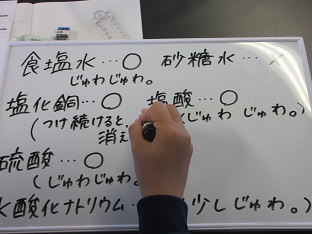 食塩水…○ 砂糖水…×
じゅわじゅわ。
塩化銅…○ 塩酸…○
(つけ続けると、 じゅわ。)
消え
硫酸…○
(じゅわじゅわ。
酸化ナトリウム… 少しじゅわ。)